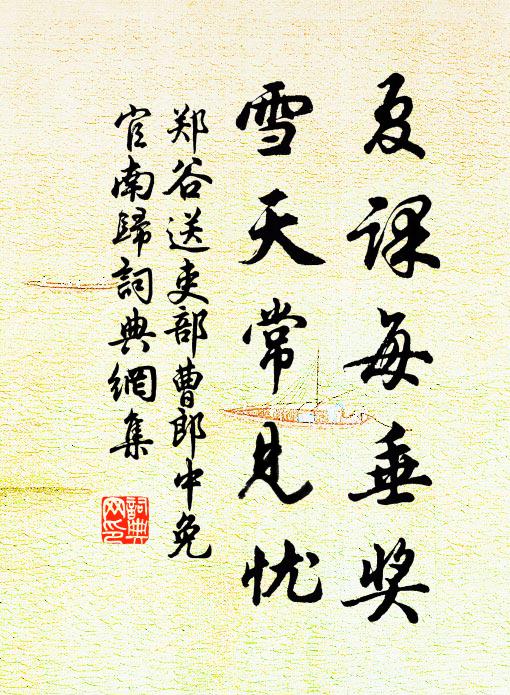 夏课每垂奖
雪天常见忧
郑谷送吏部曹郎中免
官南歸詞典網集
詞典
网印